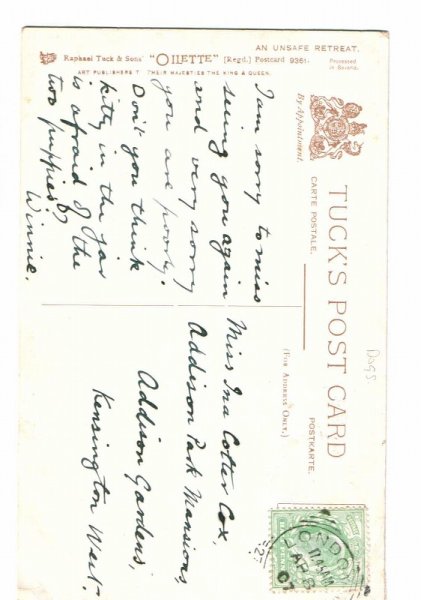 AN UNSAFE RETREAT.
Raphael Tuck & Sons' "OILETTE" [Regd.] Postcard 9361.
Processed in Saxony.
ART PUBLISHERS T THEIR MAJESTIES THE KING & QUEEN.
By Appointment.
TUCK'S POST CARD
CARTE POSTALE.
POSTKARTE.
(FOR ADDRESS ONLY.)
I am sorry to miss
seeing you again
and very sorry
you are poorly.
Don't you think
kitty in the jar
is afraid of the
two puppies?
Winnie.
Miss Ina Cotter Cox,
Addison Park Mansions,
Addison Gardens,
Kensington West.
Dogs
LONDON
11 AM
AP 8
07